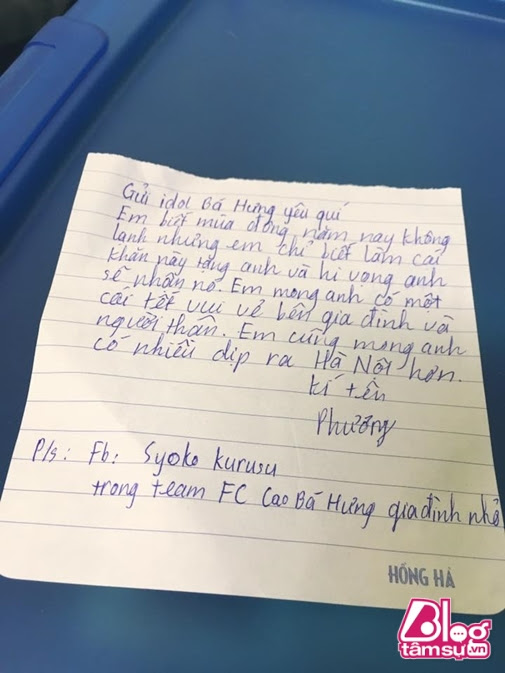 Gửi idol Bá Hưng yêu quí
Em biết mùa đông năm nay không
lạnh nhưng em chỉ biết làm cái
khăn này tặng anh và hi vọng anh
sẽ nhận nó. Em mong anh có một
cái tết vui vẻ bên gia đình và
người thân. Em cũng mong anh
có nhiều dịp ra Hà Nội hơn.
kí tên
Phương
P/s: Fb: Syoko Kurusu
trong team FC Cao Bá Hưng gia đình nhỏ
HỒNG HÀ
Blog
tâmsự.vn